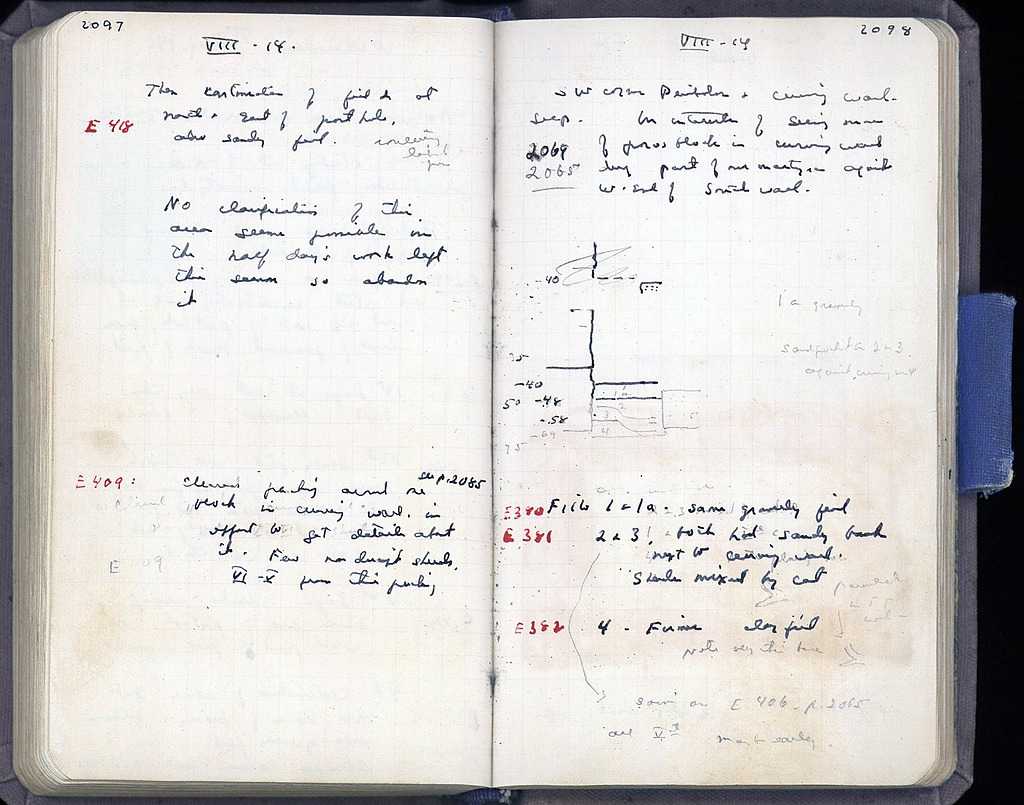 2097
VIII - 14.
Then continuation of fill at
E 418
north + East of post hole,
also sandy fill.
No clarification of this
area seems possible in
the half day's work left
this season so abandon
it
see p. 2085
E 409:
cleaned packing around
block in curving wall in
effort to get details about
it. Few nondescript sherds,
E 409
VI - V from this packing
2098
VIII - 14
SW corner Peribolos + curving wall.
seep. In interests of seeing more
2069
of poros block in curving wall
2065
part of against
W. end of South wall.
-40
1a gravelly
2 + 3
against curving wall
25
-40
1
1a
50 -48
2
-.58
3
-69
4
75
E 380 Fills 1 + 1a - same gravelly fill
E 381 2 + 3! both sandy back
next to curving wall.
Sherds mixed by cat
E 382 4 - Firm clay fill
note very thin
same as E 406 - p. 2065
all V th
maybe early.